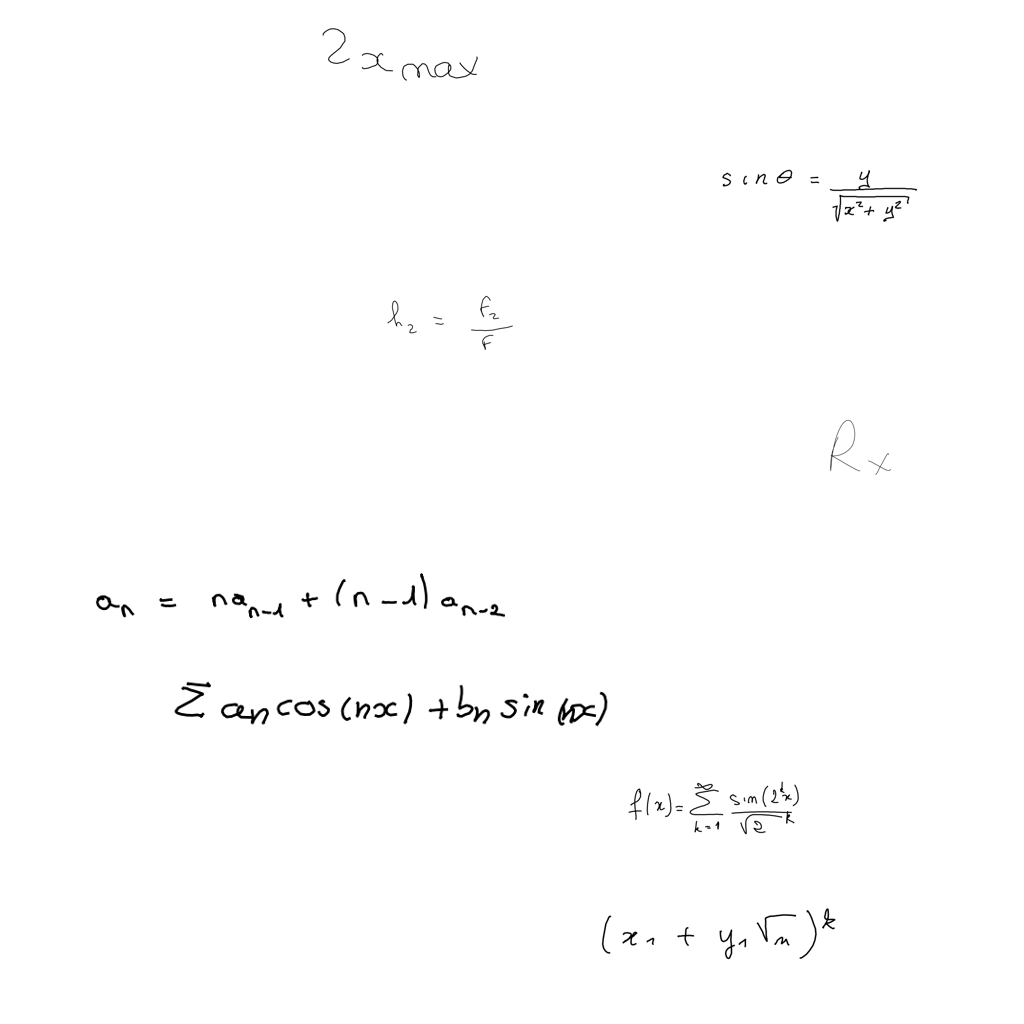 2x_{max}
sin θ = \frac{y}{\sqrt{x^2 + y^2}}
h_2 = \frac{f_2}{f}
R_x
a_n = na_{n-1} + (n-1)a_{n-2}
Σ a_n cos(nx) + b_n sin(nx)
f(x) = \sum_{k=1}^{∞} \frac{sin(2^k x)}{\sqrt{2}^k}
(x_1 + y_1 \sqrt{n})^k